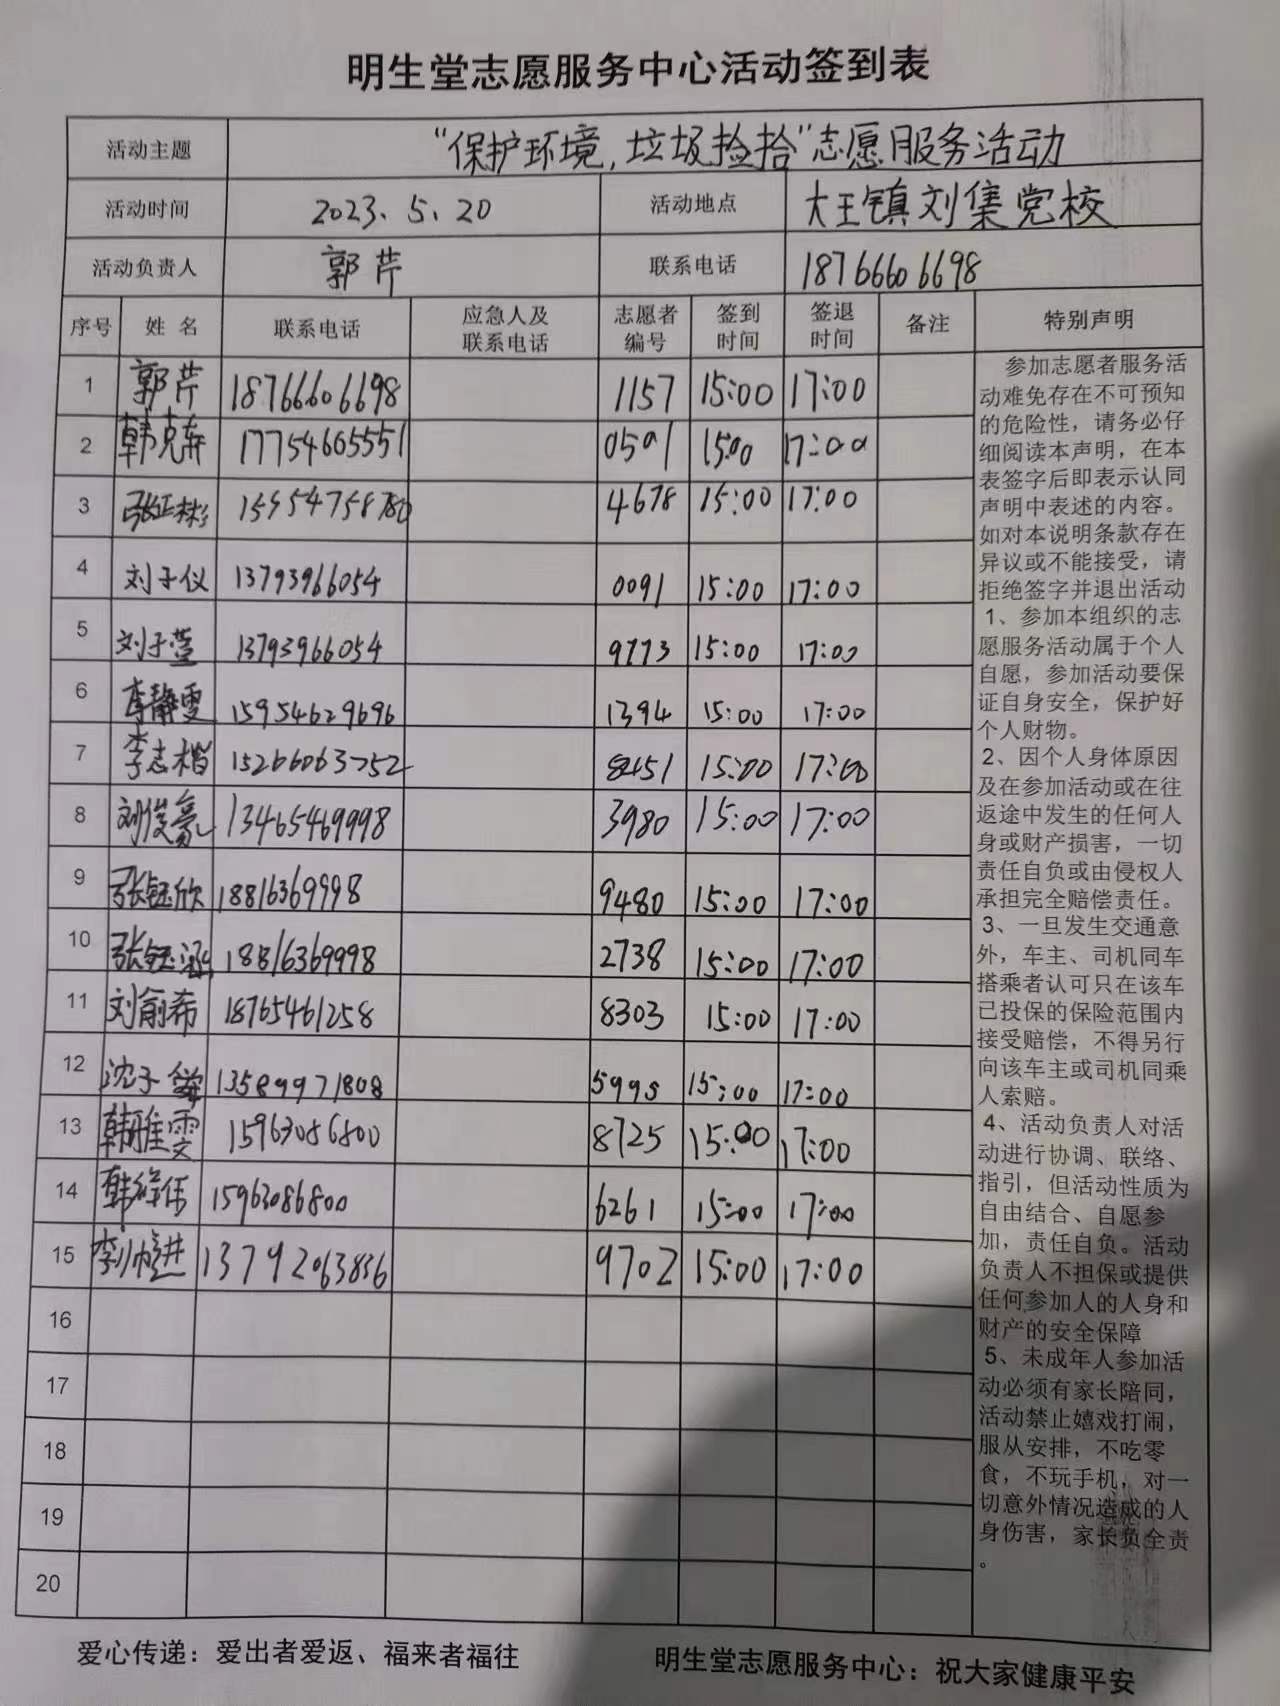 明生堂志愿服务中心活动签到表
活动主题 “保护环境,垃圾捡拾”志愿服务活动
活动时间 2023.5.20 活动地点 大王镇刘集党校
活动负责人 郭芹 联系电话 18766606698
序号 姓名 联系电话 应急人及联系电话 志愿者编号 签到时间 签退时间 备注 特别声明
1 郭芹 18766606698 1157 15:00 17:00
2 17754605551 0501 15:00 17:00
3 15554758780 4678 15:00 17:00
4 刘子仪 13793966054 0091 15:00 17:00
5 刘子萱 13793966054 9773 15:00 17:00
6 李静雯 15954629696 1394 15:00 17:00
7 李志楷 15266063752 8451 15:00 17:00
8 刘俊豪 13465469998 3980 15:00 17:00
9 张钰欣 18816369998 9480 15:00 17:00
10 张钰涵 18816369998 2738 15:00 17:00
11 刘俞希 18765461258 8303 15:00 17:00
12 13589971808 5995 15:00 17:00
13 韩雅雯 15963086800 8725 15:00 17:00
14 15963086800 6261 15:00 17:00
15 13792063836 9702 15:00 17:00
16
17
18
19
20
参加志愿者服务活
动难免存在不可预知
的危险性，请务必仔
细阅读本声明，在本
表签字后即表示认同
声明中表述的内容。
如对本说明条款存在
异议或不能接受，请
拒绝签字并退出活动
1、参加本组织的志
愿服务活动属于个人
自愿，参加活动要保
证自身安全，保护好
个人财物。
2、因个人身体原因
及在参加活动或在往
返途中发生的任何人
身或财产损害，一切
责任自负或由侵权人
承担完全赔偿责任。
3、一旦发生交通意
外，车主、司机同车
搭乘者认可只在该车
已投保的保险范围内
接受赔偿，不得另行
向该车主或司机同乘
人索赔。
4、活动负责人对活
动进行协调、联络、
指引，但活动性质为
自由结合、自愿参
加，责任自负。活动
负责人不担保或提供
任何参加人的人身和
财产的安全保障
5、未成年人参加活
动必须有家长陪同，
活动禁止嬉戏打闹，
服从安排，不吃零
食，不玩手机，对一
切意外情况造成的人
身伤害，家长负全责
。
爱心传递：爱出者爱返、福来者福往 明生堂志愿服务中心：祝大家健康平安